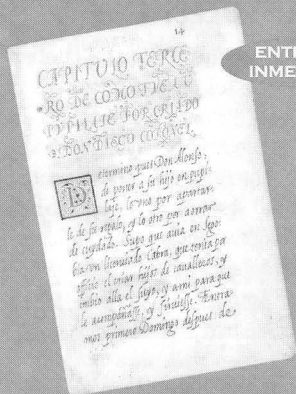 14
ENTR
INMED
CAPITULO TERCE
RO DE COMO FUE A
PUPILAJE POR CRIADO
DE DON DIEGO CORONEL
Determino pues Don Alonso,
de poner a su hijo en pupi-
laje, lo vno por apartar-
le de su regalo, y lo otro por aorrar
de cuydado. Supo que auia en Sego-
bia vn licenciado Cabra, que tenia por
officio el criar hijos de caualleros, y
embio alla el suyo, y a mi para que
le acompañasse, y siruiesse. Entra-
mos primero Domingo despues de